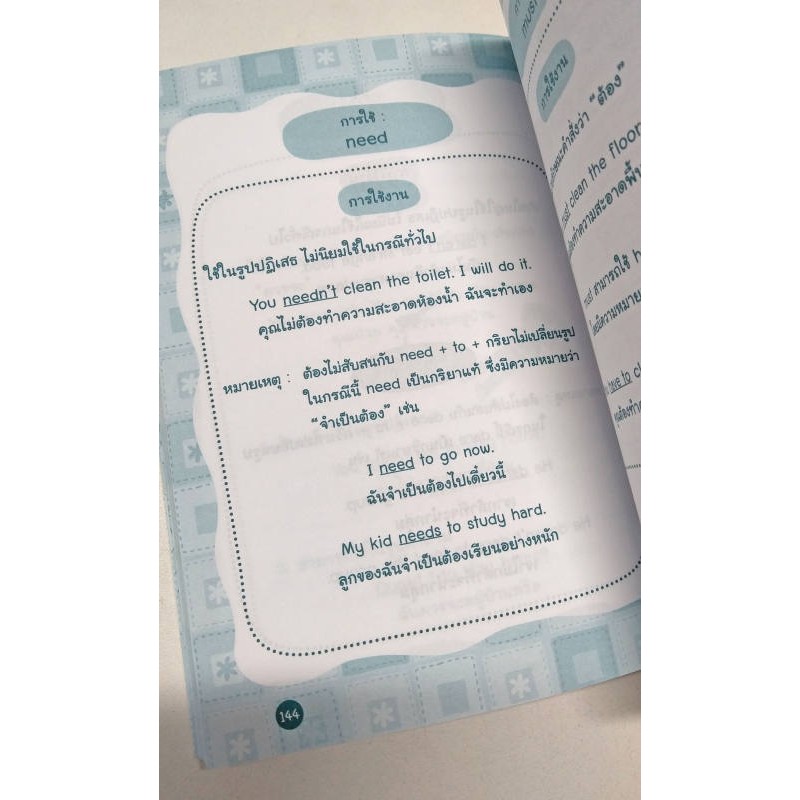 การใช้ :
need
การใช้งาน
ใช้ในรูปปฏิเสธ ไม่นิยมใช้ในกรณีทั่วไป
You needn't clean the toilet. I will do it.
คุณไม่ต้องทำความสะอาดห้องน้ำ ฉันจะทำเอง
หมายเหตุ : ต้องไม่สับสนกับ need + to + กริยาไม่เปลี่ยนรูป
ในกรณีนี้ need เป็นกริยาแท้ ซึ่งมีความหมายว่า
"จำเป็นต้อง" เช่น
I need to go now.
ฉันจำเป็นต้องไปเดี๋ยวนี้
My kid needs to study hard.
ลูกของฉันจำเป็นต้องเรียนอย่างหนัก
144
การใช้งาน
"ต้อง"
clean the floor
ทำความสะอาดพื้น
สามารถใช้
มีความหมาย